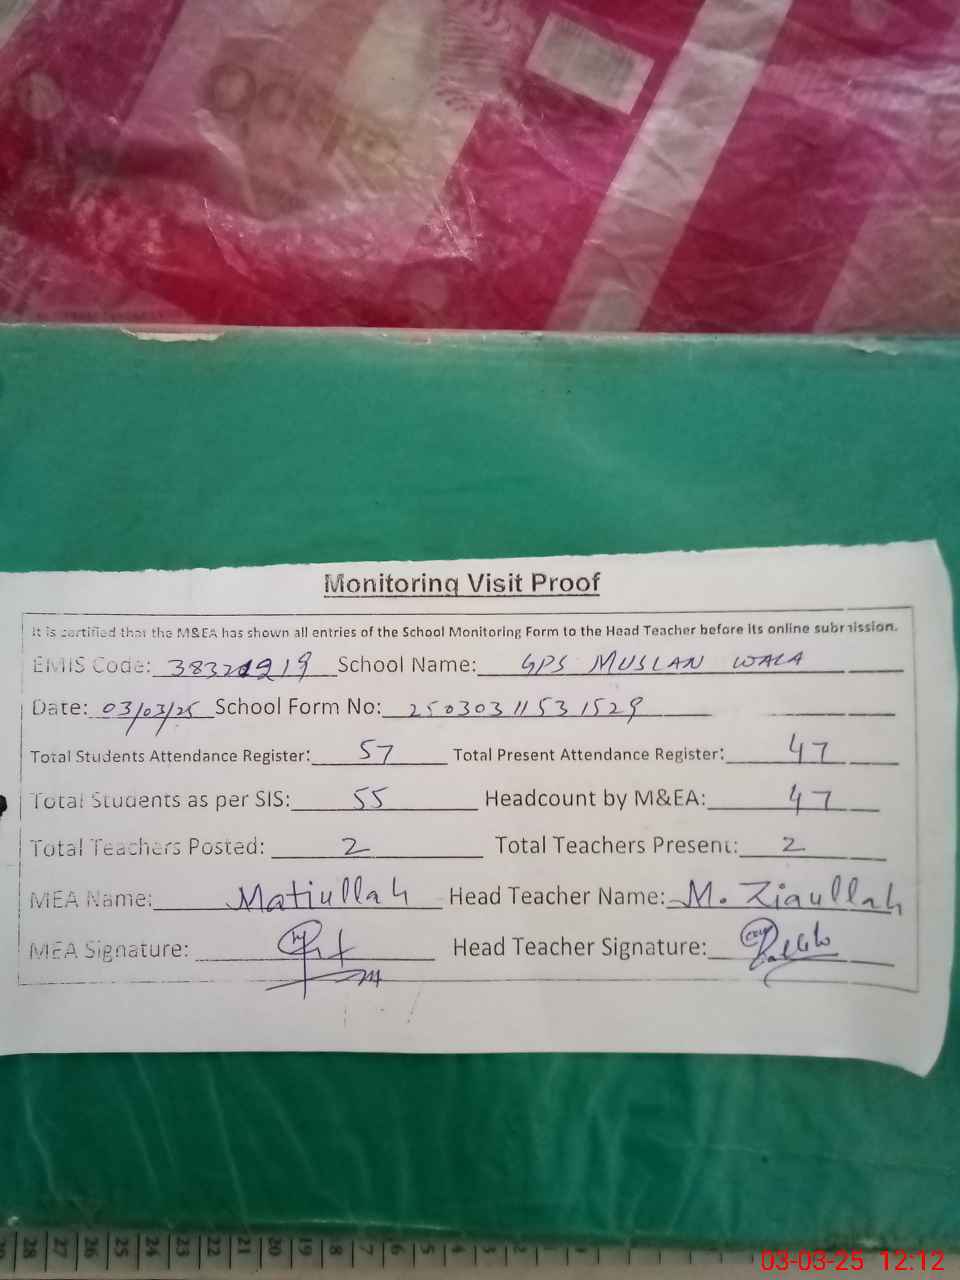 Monitoring Visit Proof
It is certified that the M&EA has shown all entries of the School Monitoring Form to the Head Teacher before its online submission.
EMIS Code: School Name: GPS MUSLAN WALA
Date: 03/03/25 School Form No: 25030311531529
Total Students Attendance Register: 57 Total Present Attendance Register: 47
Total Students as per SIS: 55 Headcount by M&EA: 47
Total Teachers Posted: 2 Total Teachers Present: 2
MEA Name: Matiullah Head Teacher Name: M. Ziaullah
MEA Signature: Head Teacher Signature:
28 27 26 25 24 23 22 21 20 19
03-03-25 12:12